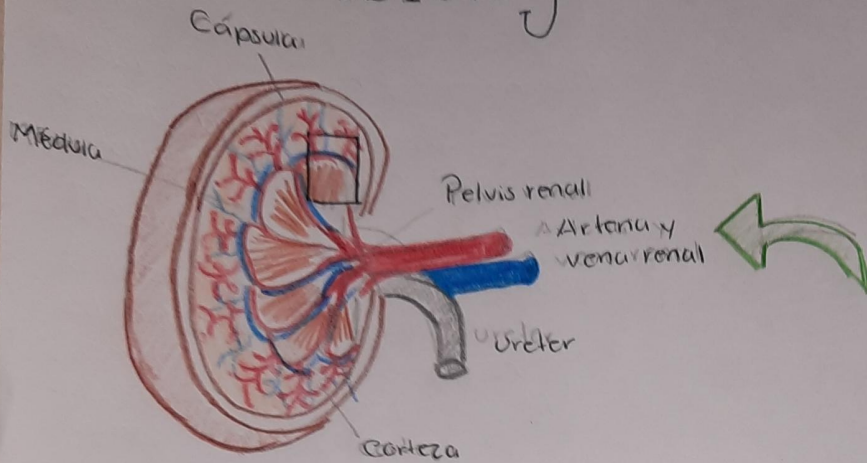 Cápsula
Médula
Pelvis renal
Arteria y
vena renal
Ureter
Corteza